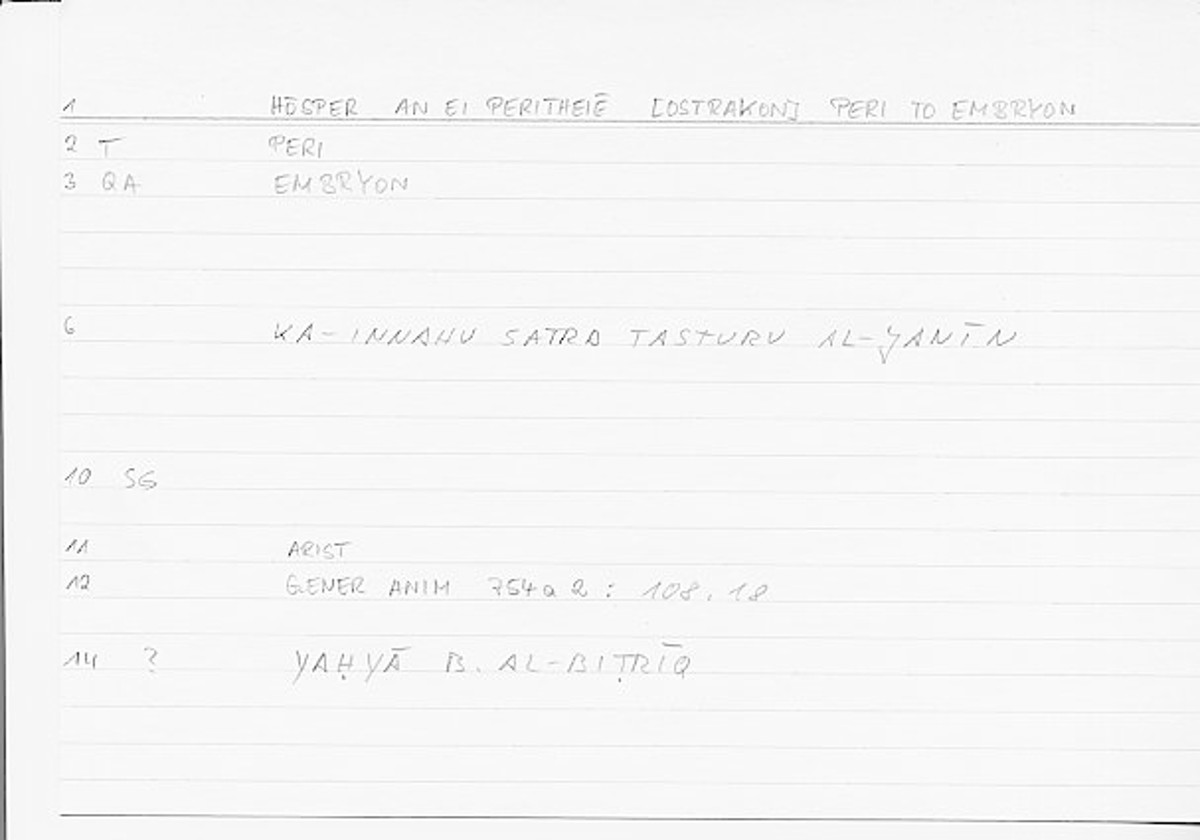 1 HŌSPER AN EI PERITHEIĒ [OSTRAKON] PERI TO EMBRYON
2 T PERI
3 QA EMBRYON
6 KA-INNAHU SATRA TASTURU AL-ǦANĪN
10 SG
11 ARIST
12 GENER ANIM 754a2: 108.18
14 ? YAḤYĀ B. AL-BIṬRĪQ